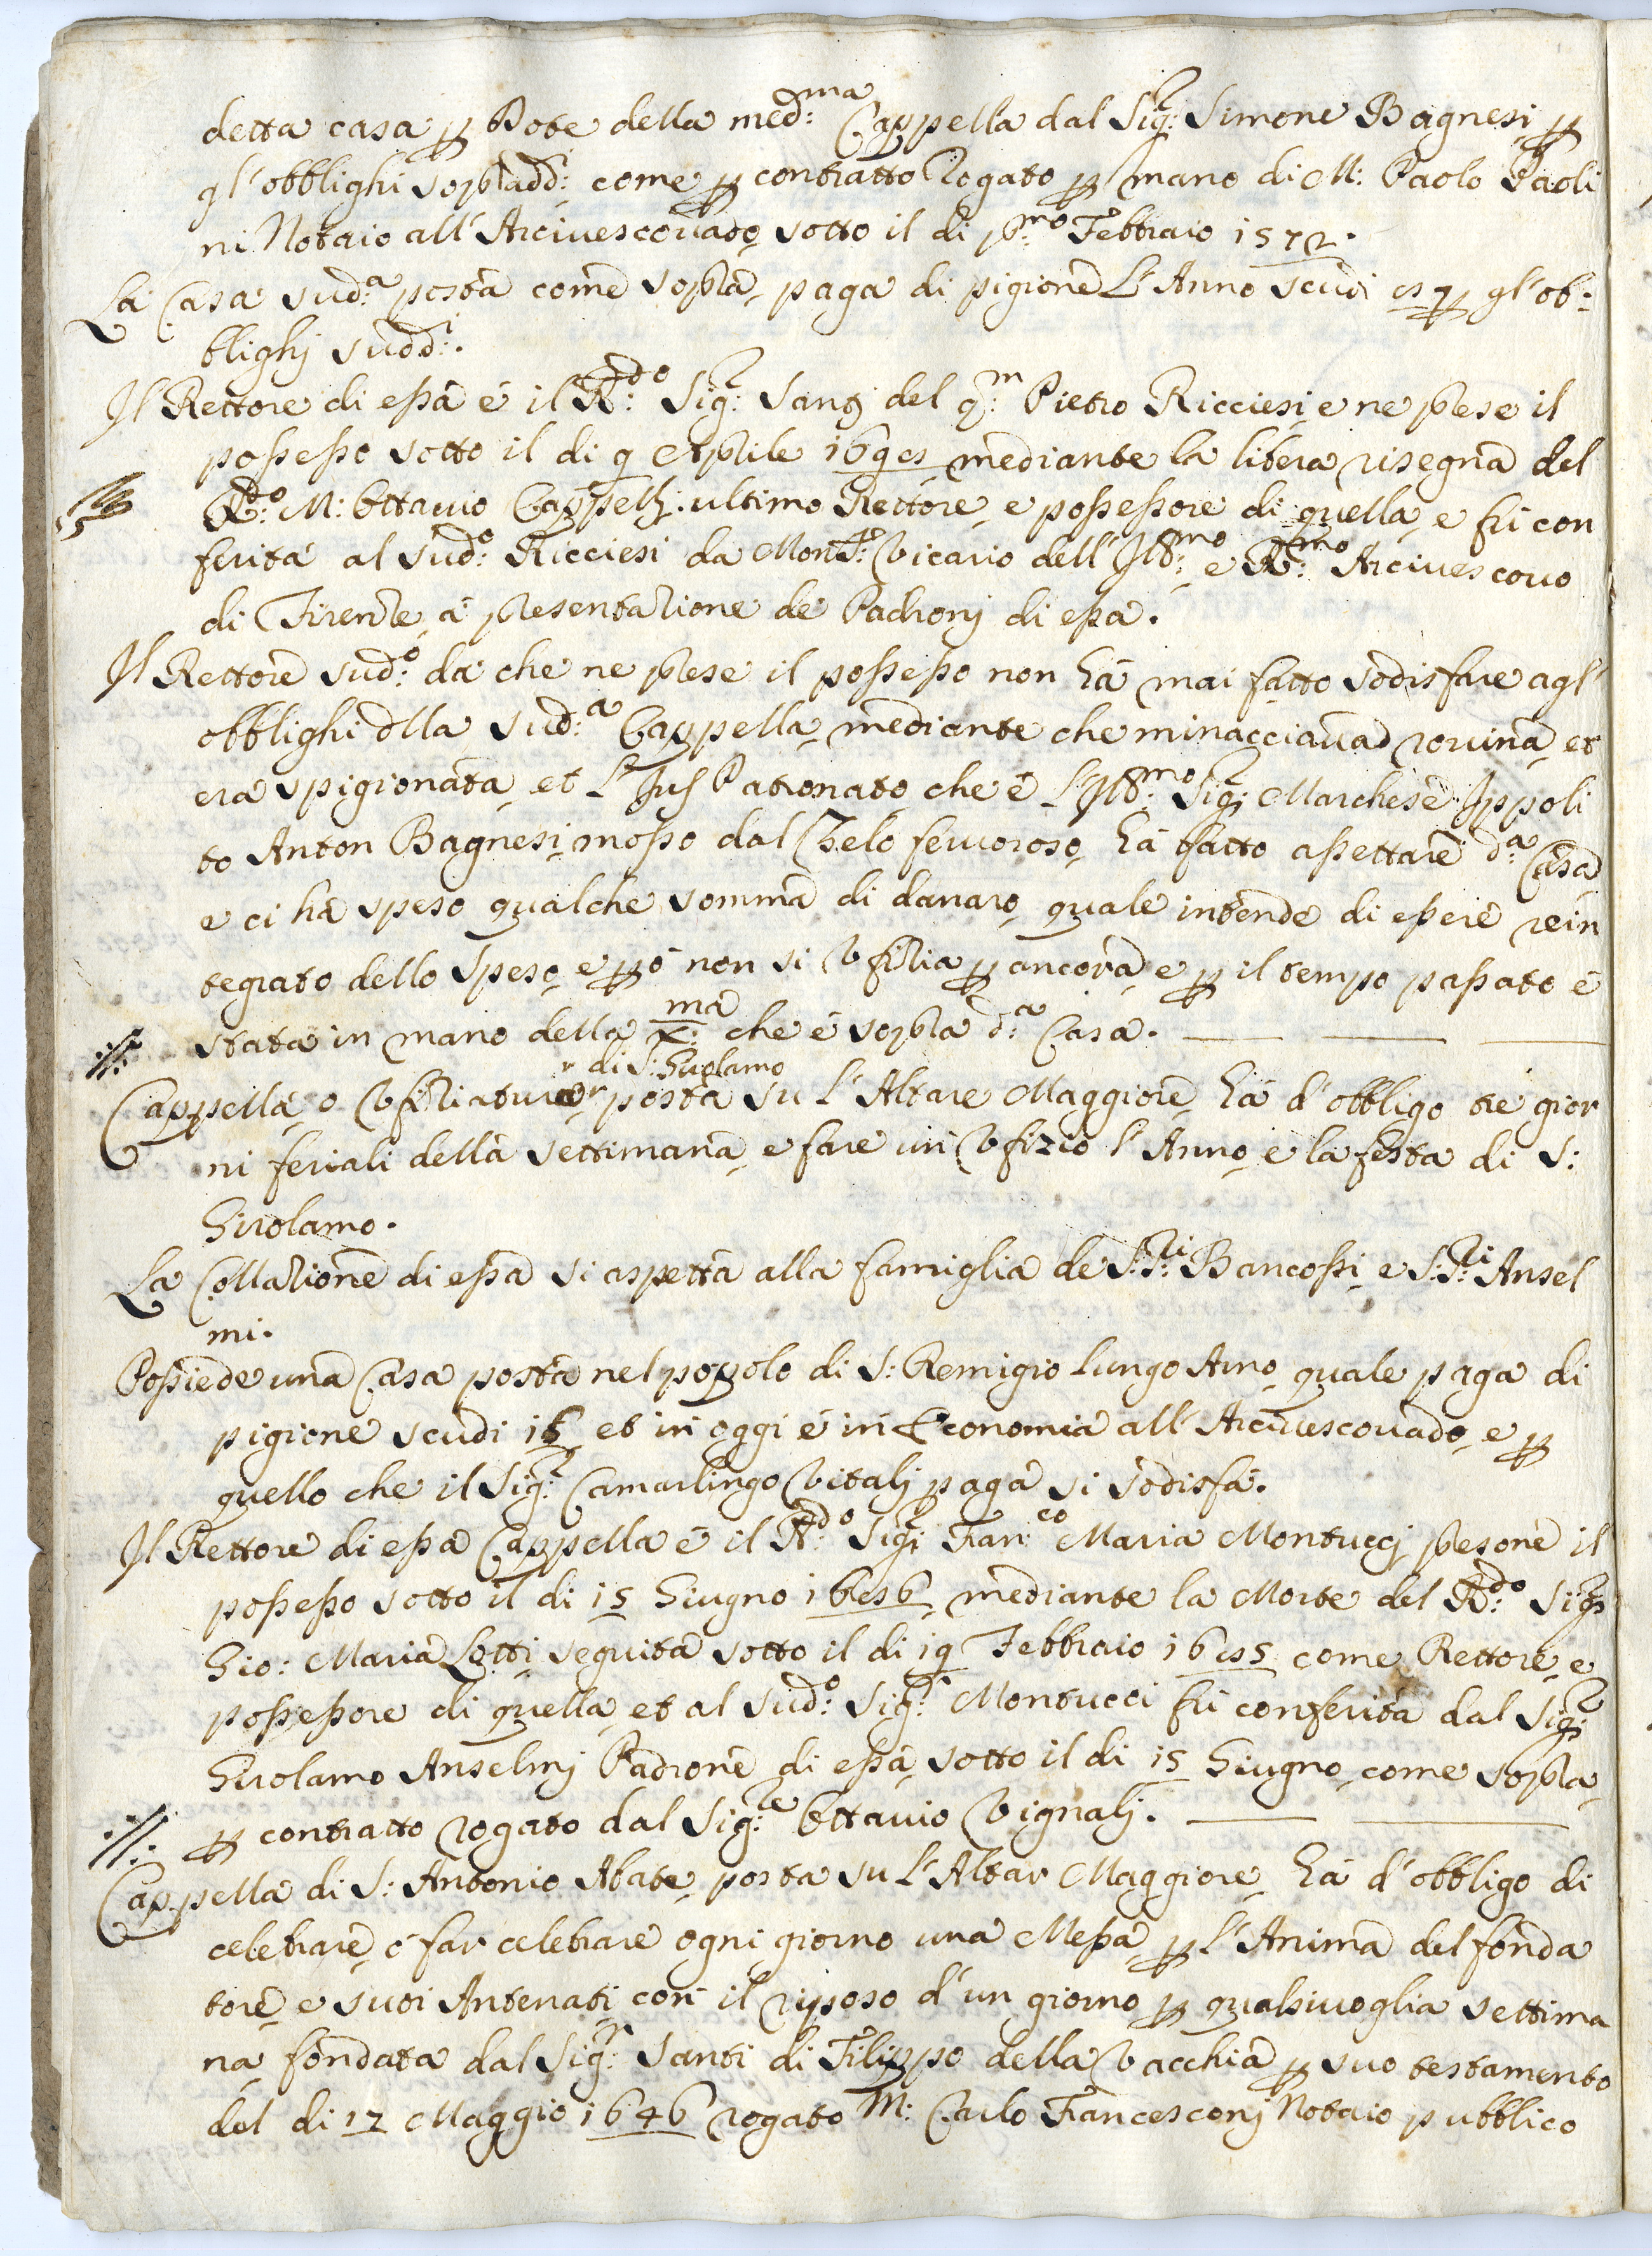 detta casa p Dote della med:ma Cappella dal Sig:r Simone Bagnesi p
gl'obblighi sopradd:i come p contratto Rogato p mano di M: Paolo Paoli
ni Notaio all'Arciuescouado sotto il di p:mo Febbraio 1572.
La Casa sud:a posta come sopra, paga di pigione L'Anno scudi p gl'ob:
blighj sudd:i.
Il Rettore di essa é il R:do Sig:r Santj del q:m Pietro Ricciesi, e ne prese il
possesso sotto il di 9 Aprile mediante la libera risegna del
R:do M: Ottauio Cappellj. ultimo Rettore, e possessore di quella, e fú con
ferita al sud:o Ricciesi da Mons:r Vicario dell'Ill:mo e R:mo Arciuescouo
di Firenze, á presentazione de Padronj di essa.
Il Rettore sud:o da che ne prese il possesso non há mai fatto sodisfare agl'
obblighi dlla sud:a Cappella, mediante che minacciaua rouina, et
era spigionata, et L'Jus Patronato che é L'Ill:mo Sig:r Marchese Ippoli
to Anton Bagnesi, mosso dal Zelo feruoroso, há fatto assettare d:a Casa
e ci há speso qualche somma di danaro, quale intende di essere rein
tegrato dello speso, e pó non si Vfizia p ancora, e p il tempo passato é
stata in mano della x:ma che é sopra d:a Casa.
di S: Girolamo
Cappella, o Vfiziatura posta su L'Altare Maggiore há d'obbligo tre gior
ni feriali della settimana, e fare un Vfizio l'Anno, e la festa di S:
Girolamo.
La Collazione di essa si aspetta alla famiglia de S:ri Bancossi, e S:ri Ansel
mi.
Possiede una Casa posta nel popolo di S: Remigio lungo Arno, quale paga di
pigione scudi 15 et in oggi é in Economia all'Arciuescouado, e p
quello che il Sig:r Camarlingo Vitalj paga si sodisfá.
Il Rettore di essa Cappella é il R:do Sig:r Fran:co Maria Montuccj presone il
possesso sotto il di 15 Giugno mediante la Morte del R:do Sig:r
Gio: Maria Lotti, seguita sotto il di 19 Febbraio come Rettore, e
possessore di quella, et al sud:o Sig:r Montucci fú conferita dal Sig:r
Girolamo Anselmj Padrone di essa, sotto il di 15 Giugno, come sopra,
p contratto rogato dal Sig:re Ottauio Vignalj.
Cappella di S: Antonio Abate, posta su L'Altar Maggiore, há d'obbligo di
celebrare, ó far celebrare ogni giorno una Messa, p L'Anima del fonda
tore, e suoi Antenati, con il riposo d'un giorno p qualsiuoglia settima
na, fondata dal Sig:r Santi di Filippo della Vacchia p suo testamento
del di 12 Maggio 1646 rogato M: Carlo Francesconj Notaio pubblico